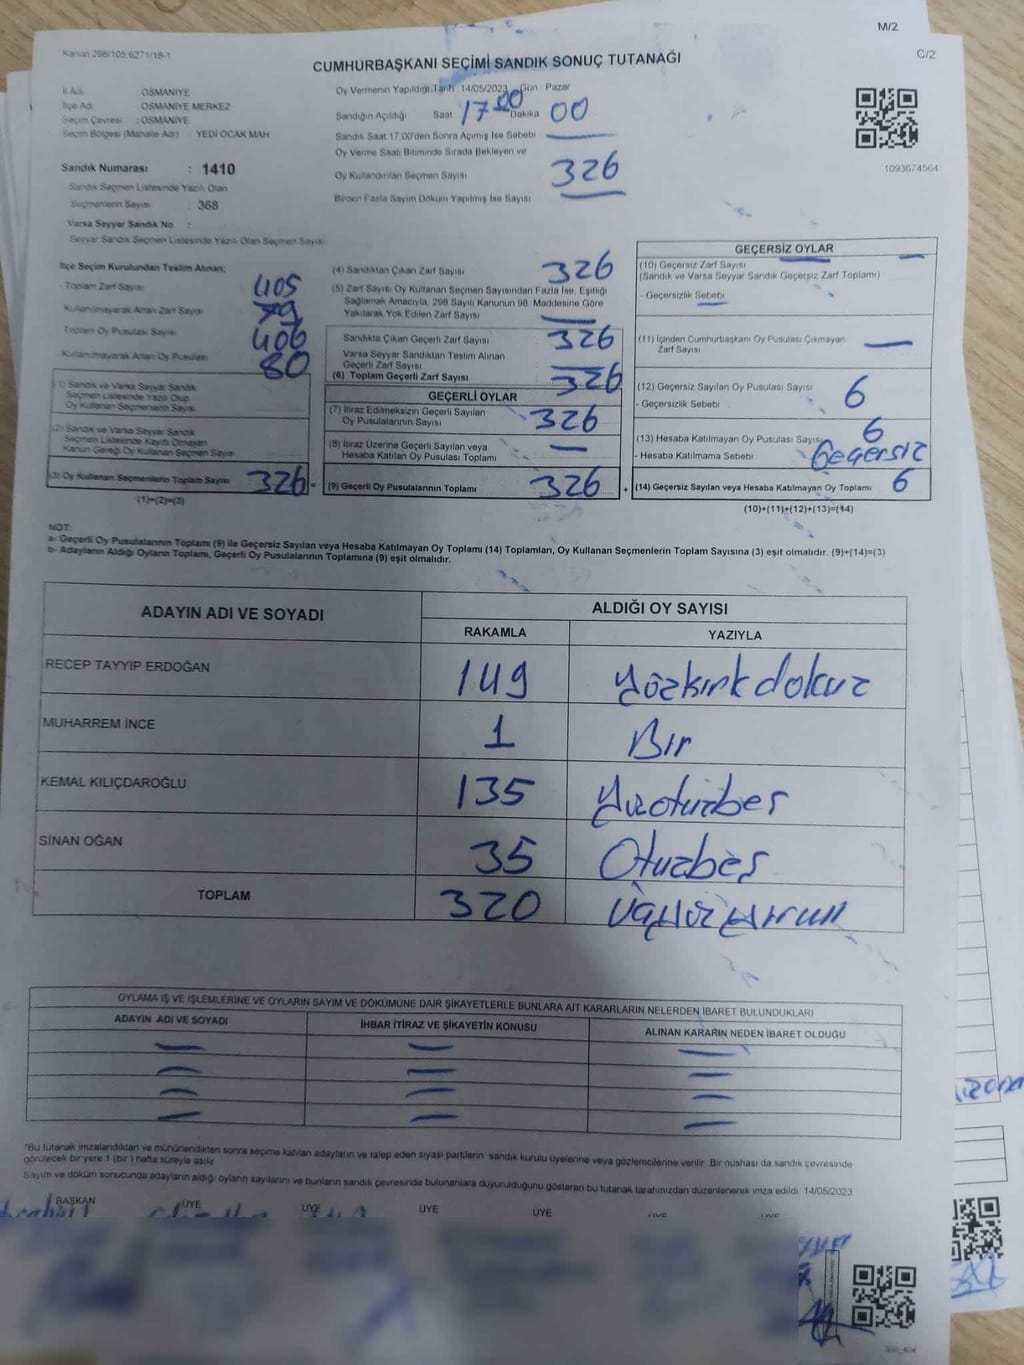 M/2
Kanun 298/105,6271/18-1
C/2
CUMHURBAŞKANI SEÇİMİ SANDIK SONUÇ TUTANAĞI
İl Adı OSMANİYE
İlçe Adı OSMANİYE MERKEZ
Seçim Çevresi : OSMANİYE
Seçim Bölgesi (Mahalle Adı) : YEDİ OCAK MAH
Sandık Numarası : 1410
Sandık Seçmen Listesinde Yazılı Olan
Seçmenlerin Sayısı : 368
Varsa Seyyar Sandık No :
Seyyar Sandık Seçmen Listesinde Yazılı Olan Seçmen Sayısı
Oy Vermenin Yapıldığı Tarih 14/05/2023 Gün : Pazar
Sandığın Açıldığı Saat 17 00 Dakika 00
Sandık Saat 17.00'den Sonra Açılmış İse Sebebi
Oy Verme Saati Bitiminde Sırada Bekleyen ve
Oy Kullandırılan Seçmen Sayısı 326
Birden Fazla Sayım Döküm Yapılmış İse Sayısı
1093674564
İlçe Seçim Kurulundan Teslim Alınan:
Toplam Zarf Sayısı 405
Kullanılmayarak Artan Zarf Sayısı 79
Toplam Oy Pusulası Sayısı 406
Kullanılmayarak Artan Oy Pusulası 80
(1) Sandık ve Varsa Seyyar Sandık
Seçmen Listesinde Yazılı Olup
Oy Kullanan Seçmenlerin Sayısı
(2) Sandık ve Varsa Seyyar Sandık
Seçmen Listesinde Kayıtlı Olmayan
Kanun Gereği Oy Kullanan Seçmen Sayısı
(3) Oy Kullanan Seçmenlerin Toplam Sayısı 326 =
(1)+(2)=(3)
(4) Sandıktan Çıkan Zarf Sayısı 326
(5) Zarf Sayısı Oy Kullanan Seçmen Sayısından Fazla İse, Eşitliği
Sağlamak Amacıyla, 298 Sayılı Kanunun 98. Maddesine Göre
Yakılarak Yok Edilen Zarf Sayısı
Sandıkta Çıkan Geçerli Zarf Sayısı 326
Varsa Seyyar Sandıktan Teslim Alınan
Geçerli Zarf Sayısı
(6) Toplam Geçerli Zarf Sayısı 326
GEÇERLİ OYLAR
(7) İtiraz Edilmeksizin Geçerli Sayılan
Oy Pusulalarının Sayısı 326
(8) İtiraz Üzerine Geçerli Sayılan veya
Hesaba Katılan Oy Pusulası Toplamı
(9) Geçerli Oy Pusulalarının Toplamı 326 +
GEÇERSİZ OYLAR
(10) Geçersiz Zarf Sayısı
(Sandık ve Varsa Seyyar Sandık Geçersiz Zarf Toplamı)
- Geçersizlik Sebebi
(11) İçinden Cumhurbaşkanı Oy Pusulası Çıkmayan
Zarf Sayısı
(12) Geçersiz Sayılan Oy Pusulası Sayısı 6
- Geçersizlik Sebebi
(13) Hesaba Katılmayan Oy Pusulası Sayısı 6
- Hesaba Katılmama Sebebi Geçersiz
(14) Geçersiz Sayılan veya Hesaba Katılmayan Oy Toplamı 6
(10)+(11)+(12)+(13)=(14)
NOT:
a- Geçerli Oy Pusulalarının Toplamı (9) ile Geçersiz Sayılan veya Hesaba Katılmayan Oy Toplamı (14) Toplamları, Oy Kullanan Seçmenlerin Toplam Sayısına (3) eşit olmalıdır. (9)+(14)=(3)
b- Adayların Aldığı Oyların Toplamı, Geçerli Oy Pusulalarının Toplamına (9) eşit olmalıdır.
ADAYIN ADI VE SOYADI ALDIĞI OY SAYISI
RAKAMLA YAZIYLA
RECEP TAYYİP ERDOĞAN 149 Yözkırkdokuz
MUHARREM İNCE 1 Bır
KEMAL KILIÇDAROĞLU 135 Yüzoturbeş
SİNAN OĞAN 35 Otuzbeş
TOPLAM 320
OYLAMA İŞ VE İŞLEMLERİNE VE OYLARIN SAYIM VE DÖKÜMÜNE DAİR ŞİKAYETLERLE BUNLARA AİT KARARLARIN NELERDEN İBARET BULUNDUKLARI
ADAYIN ADI VE SOYADI İHBAR İTİRAZ VE ŞİKAYETİN KONUSU ALINAN KARARIN NEDEN İBARET OLDUĞU
*Bu tutanak imzalandıktan ve mühürlendikten sonra seçime katılan adayların ve talep eden siyasi partilerin sandık kurulu üyelerine veya gözlemcilerine verilir. Bir nüshası da sandık çevresinde
görülecek bir yere 1 (bir) hafta süreyle asılır.
Sayım ve döküm sonucunda adayların aldığı oyların sayılarını ve bunların sandık çevresinde bulunanlara duyurulduğunu gösteren bu tutanak tarafımızdan düzenlenerek imza edildi. 14/05/2023
BAŞKAN ÜYE ÜYE ÜYE ÜYE ÜYE ÜYE